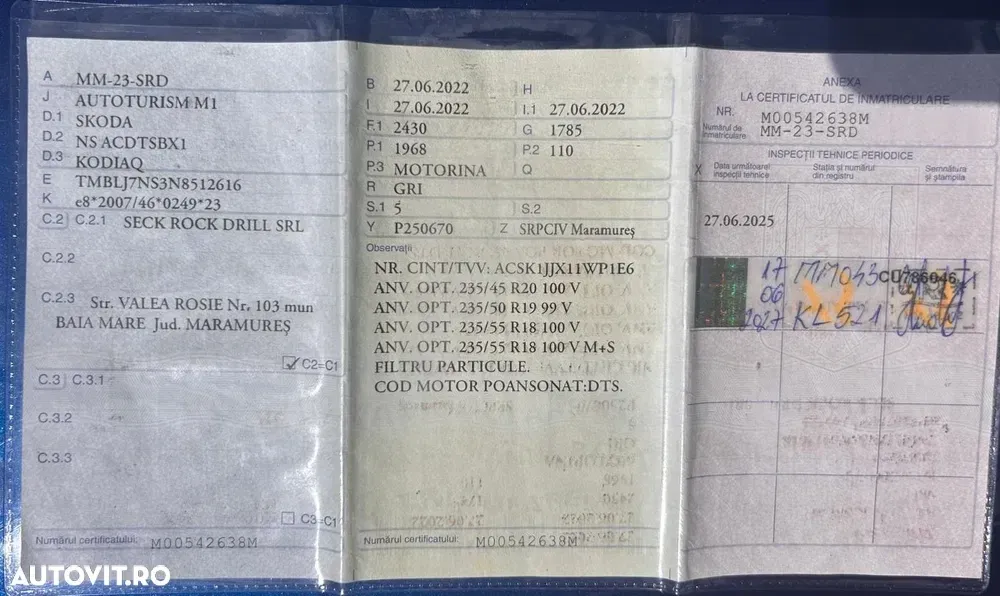 A MM-23-SRD
J AUTOTURISM M1
D.1 SKODA
D.2 NS ACDTSBX1
D.3 KODIAQ
E TMBLJ7NS3N8512616
K e8*2007/46*0249*23
C.2 C.2.1 SECK ROCK DRILL SRL
C.2.2
C.2.3 Str. VALEA ROSIE Nr. 103 mun
BAIA MARE Jud. MARAMUREŞ
C2=C1
C.3 C.3.1
C.3.2
C.3.3
C3=C1
Numărul certificatului: M00542638M
B 27.06.2022 H
I 27.06.2022 I.1 27.06.2022
F.1 2430 G 1785
P.1 1968 P.2 110
P.3 MOTORINA Q
R GRI
S.1 5 S.2
Y P250670 Z SRPCIV Maramureş
Observaţii
NR. CINT/TVV: ACSK1JJX11WP1E6
ANV. OPT. 235/45 R20 100 V
ANV. OPT. 235/50 R19 99 V
ANV. OPT. 235/55 R18 100 V
ANV. OPT. 235/55 R18 100 V M+S
FILTRU PARTICULE.
COD MOTOR POANSONAT:DTS.
Numărul certificatului: M00542638M
ANEXA
LA CERTIFICATUL DE INMATRICULARE
NR. M00542638M
Numărul de înmatriculare MM-23-SRD
INSPECŢII TEHNICE PERIODICE
X Data următoarei inspecţii tehnice
Staţia şi numărul din registru
Semnătura şi ştampila
27.06.2025
17 MM043 CU786046
06
2027 KL521
AUTOVIT.RO